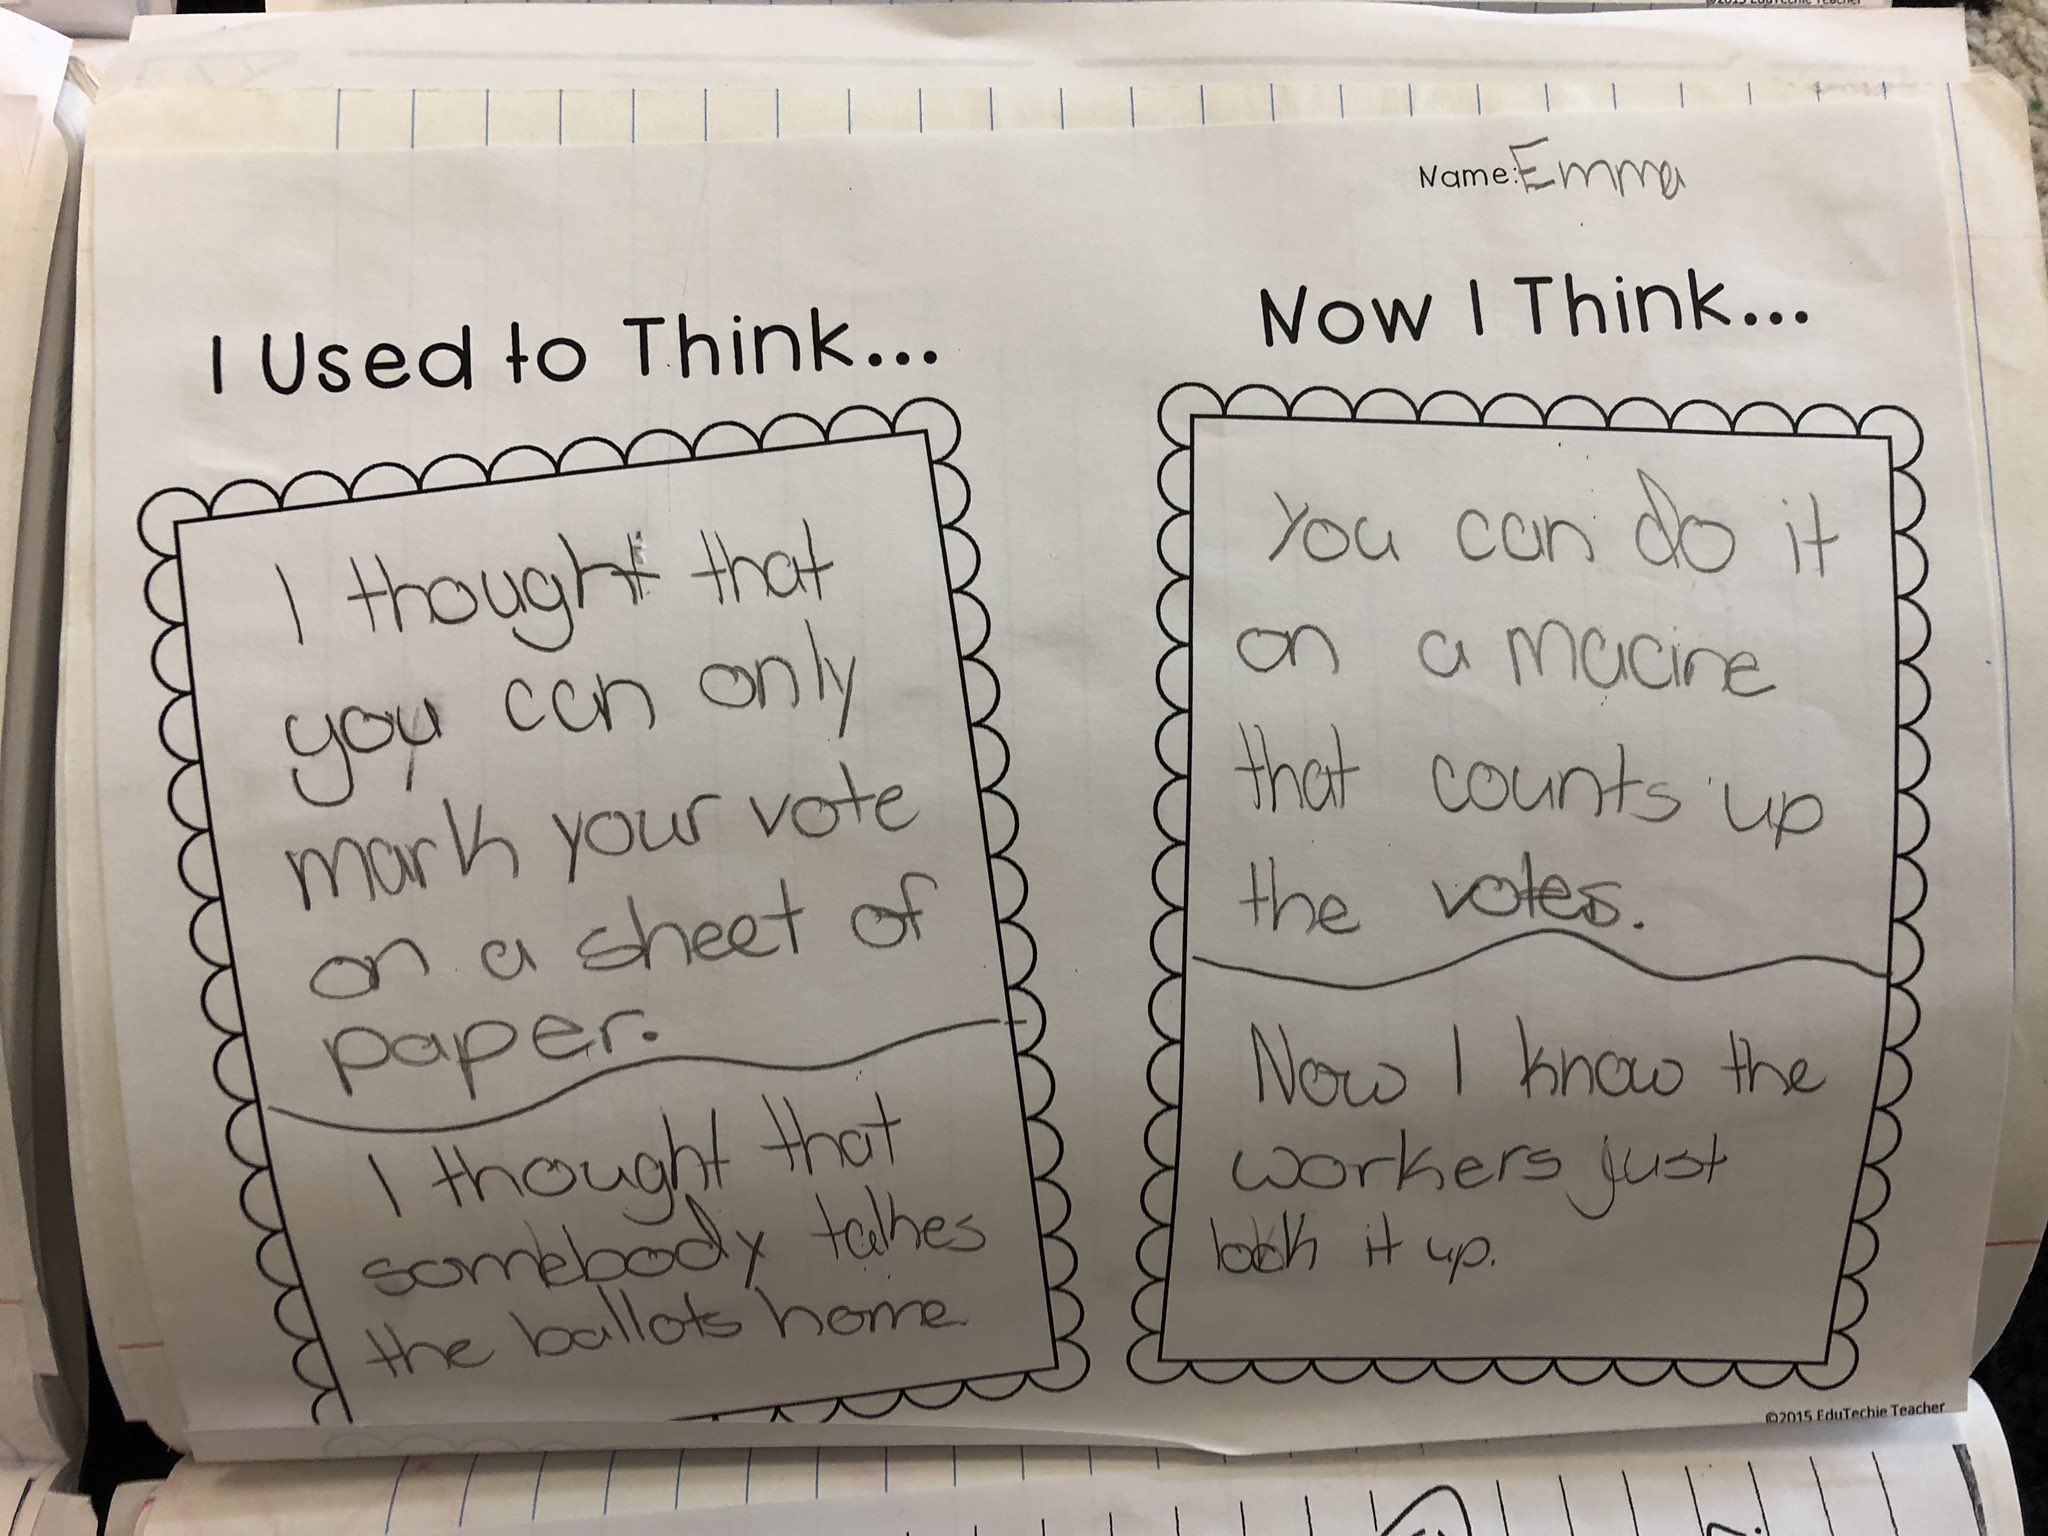 ©2015 EduTechie Teacher
Name: Emma
I Used to Think...
I thought that
you can only
mark your vote
on a sheet of
paper.
I thought that
somebody talkes
the ballots home.
Now I Think...
You can do it
on a macine
that counts up
the votes.
Now I know the
workers just
lock it up.
©2015 EduTechie Teacher